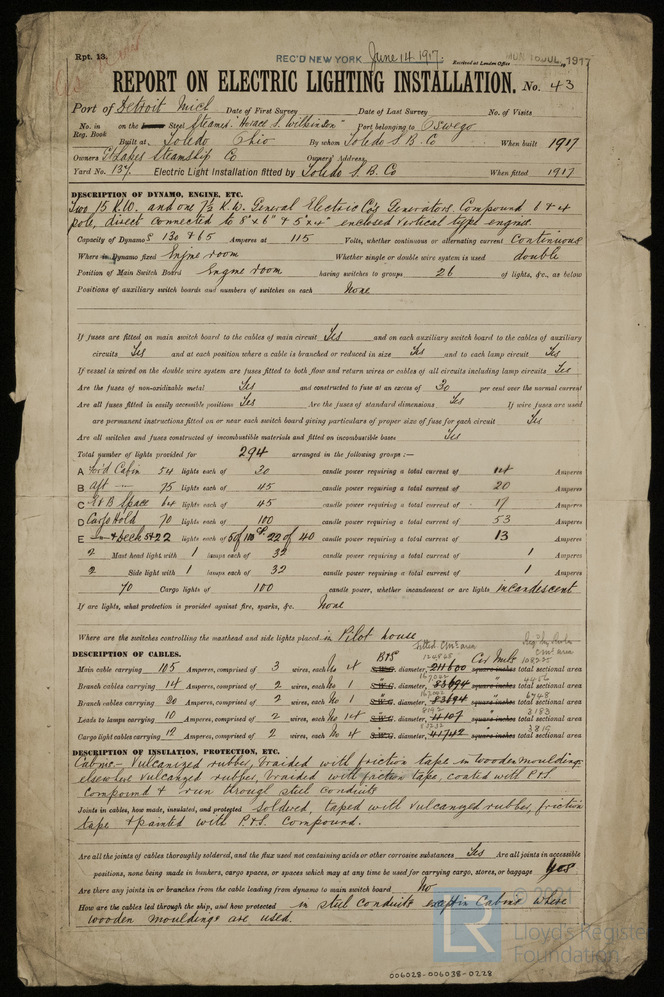 Rpt. 13.
REC'D NEW YORK June 14 1917. Received at London Office MON 16 JUL 1917
REPORT ON ELECTRIC LIGHTING INSTALLATION. No. 43
Port of Detroit Mich Date of First Survey Date of Last Survey No. of Visits
No. in Reg. Book on the Steel Steamer "Horace S. Wilkinson" Port belonging to Oswego
Built at Toledo Ohio By whom Toledo S. B. Co When built 1917
Owners Gt Lakes Steamship Co Owners' Address
Yard No. 137 Electric Light Installation fitted by Toledo S. B. Co When fitted 1917
DESCRIPTION OF DYNAMO, ENGINE, ETC.
Two 15 K.W. and one 7½ K.W. General Electric Co's Generators, Compound 1 & 4
pole, direct connected to 8"x6" & 5"x4" enclosed vertical type engine
Capacity of Dynamos 130 & 65 Amperes at 115 Volts, whether continuous or alternating current Continuous
Where is Dynamo fixed Engine room Whether single or double wire system is used double
Position of Main Switch Board Engine room having switches to groups 26 of lights, &c., as below
Positions of auxiliary switch boards and numbers of switches on each None
If fuses are fitted on main switch board to the cables of main circuit Yes and on each auxiliary switch board to the cables of auxiliary
circuits Yes and at each position where a cable is branched or reduced in size Yes and to each lamp circuit Yes
If vessel is wired on the double wire system are fuses fitted to both flow and return wires or cables of all circuits including lamp circuits Yes
Are the fuses of non-oxidizable metal Yes and constructed to fuse at an excess of 30 per cent over the normal current
Are all fuses fitted in easily accessible positions Yes Are the fuses of standard dimensions Yes If wire fuses are used
are permanent instructions fitted on or near each switch board giving particulars of proper size of fuse for each circuit Yes
Are all switches and fuses constructed of incombustible materials and fitted on incombustible bases Yes
Total number of lights provided for 294 arranged in the following groups :—
A For'd Cabin 54 lights each of 30 candle power requiring a total current of 14 Amperes
B Aft " 75 lights each of 45 candle power requiring a total current of 20 Amperes
C E & B Space 64 lights each of 45 candle power requiring a total current of 17 Amperes
D Cargo Hold 70 lights each of 100 candle power requiring a total current of 53 Amperes
E & deck 5 & 22 lights each of 5 of 100 CP. 22 of 40 candle power requiring a total current of 13 Amperes
2 Mast head light with 1 lamps each of 32 candle power requiring a total current of 1 Amperes
2 Side light with 1 lamps each of 32 candle power requiring a total current of 1 Amperes
70 Cargo lights of 100 candle power, whether incandescent or arc lights incandescent
If arc lights, what protection is provided against fire, sparks, &c. None
Where are the switches controlling the masthead and side lights placed in Pilot house
DESCRIPTION OF CABLES.
Main cable carrying 105 Amperes, comprised of 3 wires, each No 4 B&S S.W.G. diameter, 211600 Cir Mils square inches total sectional area
Branch cables carrying 14 Amperes, comprised of 2 wires, each No 1 S.W.G. diameter, 83694 " square inches total sectional area
Branch cables carrying 20 Amperes, comprised of 2 wires, each No 1 S.W.G. diameter, 83694 " square inches total sectional area
Leads to lamps carrying 10 Amperes, comprised of 2 wires, each No 14 S.W.G. diameter, 4107 " square inches total sectional area
Cargo light cables carrying 12 Amperes, comprised of 2 wires, each No 4 S.W.G. diameter, 41742 " square inches total sectional area
DESCRIPTION OF INSULATION, PROTECTION, ETC.
Cabins - Vulcanized rubber, braided with friction tape in wooden mouldings
elsewhere vulcanzed rubber, braided with friction tape, coated with P&S
compound & run through steel conduits
Joints in cables, how made, insulated, and protected soldered, taped with vulcanzed rubber, friction
tape & painted with P.&S. Compound.
Are all the joints of cables thoroughly soldered, and the flux used not containing acids or other corrosive substances Yes Are all joints in accessible
positions, none being made in bunkers, cargo spaces, or spaces which may at any time be used for carrying cargo, stores, or baggage yes
Are there any joints in or branches from the cable leading from dynamo to main switch board No
How are the cables led through the ship, and how protected in steel conduits except in Cabins where
wooden mouldings are used.
© 2021
LR
Lloyd's Register
Foundation
006028-006038-0228